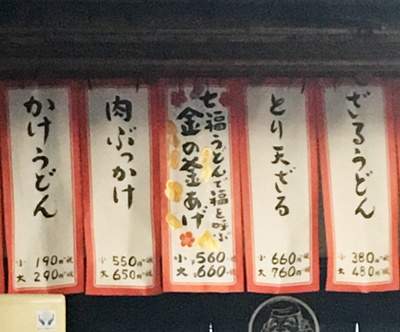 ざるうどん
小 380円
大 480円
とり天ざる
小 660円
大 760円
七福うどんで福を呼ぶ
金の釜あげ
小 560
大 660円
肉ぶっかけ
小 550円
大 650円
かけうどん
小 190円
大 290円